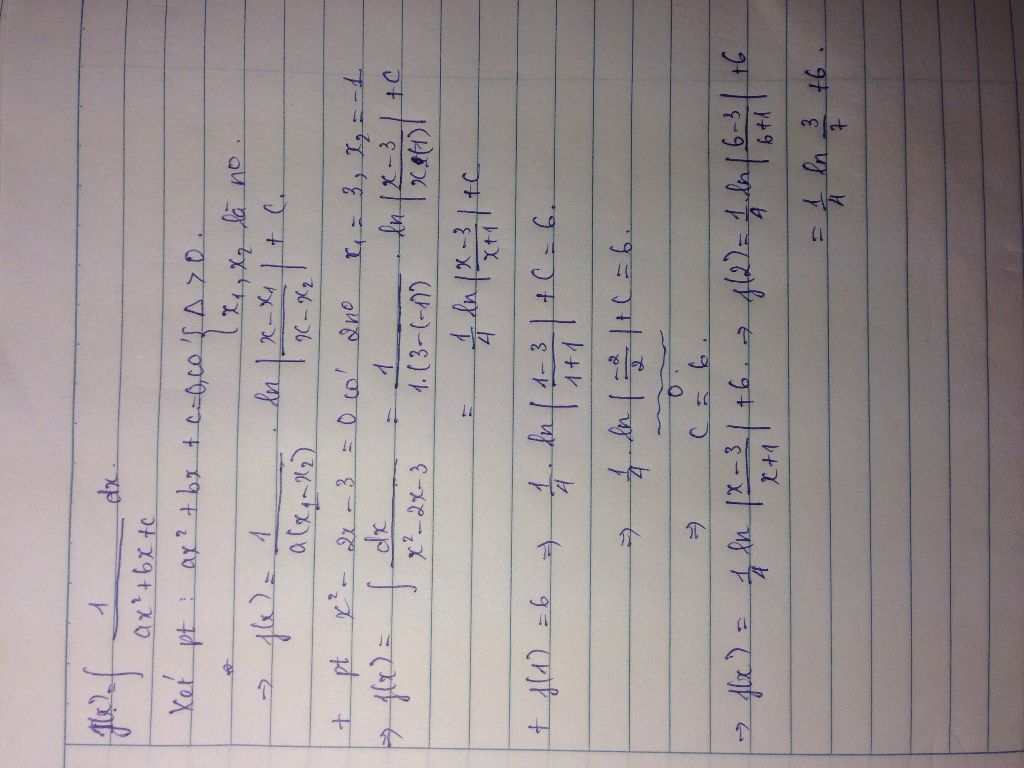 f(x) = ∫ 1/(ax² + bx + c) dx.
Xét pt : ax² + bx + c = 0, có { Δ > 0.
x₁, x₂ là no.
→ f(x) = 1/(a(x₁ - x₂)) . ln |(x - x₁)/(x - x₂)| + C.
+ pt x² - 2x - 3 = 0 có 2no x₁ = 3, x₂ = -1
⇒ f(x) = ∫ dx/(x² - 2x - 3) = 1/(1.(3 - (-1))) . ln |(x - 3)/(x-(-1))| + C
= 1/4 ln |(x - 3)/(x + 1)| + C
+ f(1) = 6 ⇒ 1/4 . ln |(1 - 3)/(1 + 1)| + C = 6.
⇒ 1/4 . ln |-2/2| + C = 6.
0
⇒ C = 6.
→ f(x) = 1/4 ln |(x - 3)/(x + 1)| + 6. → f(2) = 1/4 . ln |(6 - 3)/(6 + 1)| + 6
= 1/4 ln 3/7 + 6.